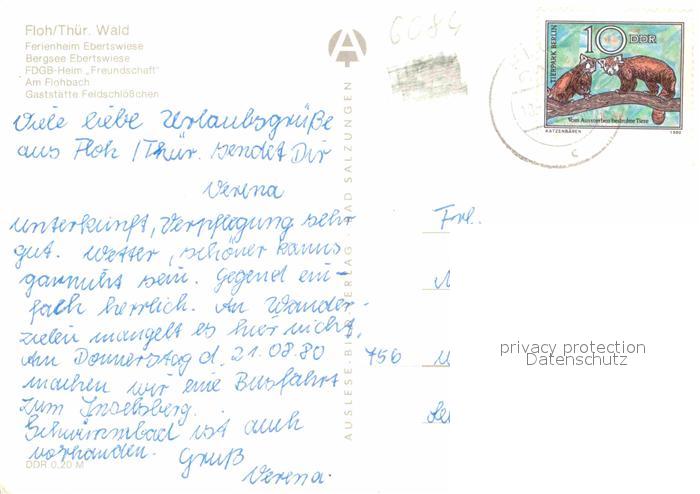 Floh/Thür. Wald
Ferienheim Ebertswiese
Bergsee Ebertswiese
FDGB-Heim „Freundschaft"
Am Flohbach
Gaststätte Feldschlößchen
6084
TIERPARK BERLIN
10 DDR
Vom Aussterben bedrohte Tiere
KATZENBÄREN 1980
Viele liebe Urlaubsgrüße
aus Floh / Thür. sendet Dir
Verena
Unterkunft, Verpflegung sehr
gut. Wetter, schöner kanns
garnicht sein. Gegend ein-
fach herrlich. An Wander-
zielen mangelt es hier nicht.
Am Donnerstag d. 21.08.80
machen wir eine Busfahrt
zum Inselsberg.
Schwimmbad ist auch
vorhanden. Gruß
Verena.
DDR 0,20 M
AUSLESE-B VERLAG BAD SALZUNGEN
Frl.
756
privacy protection
Datenschutz